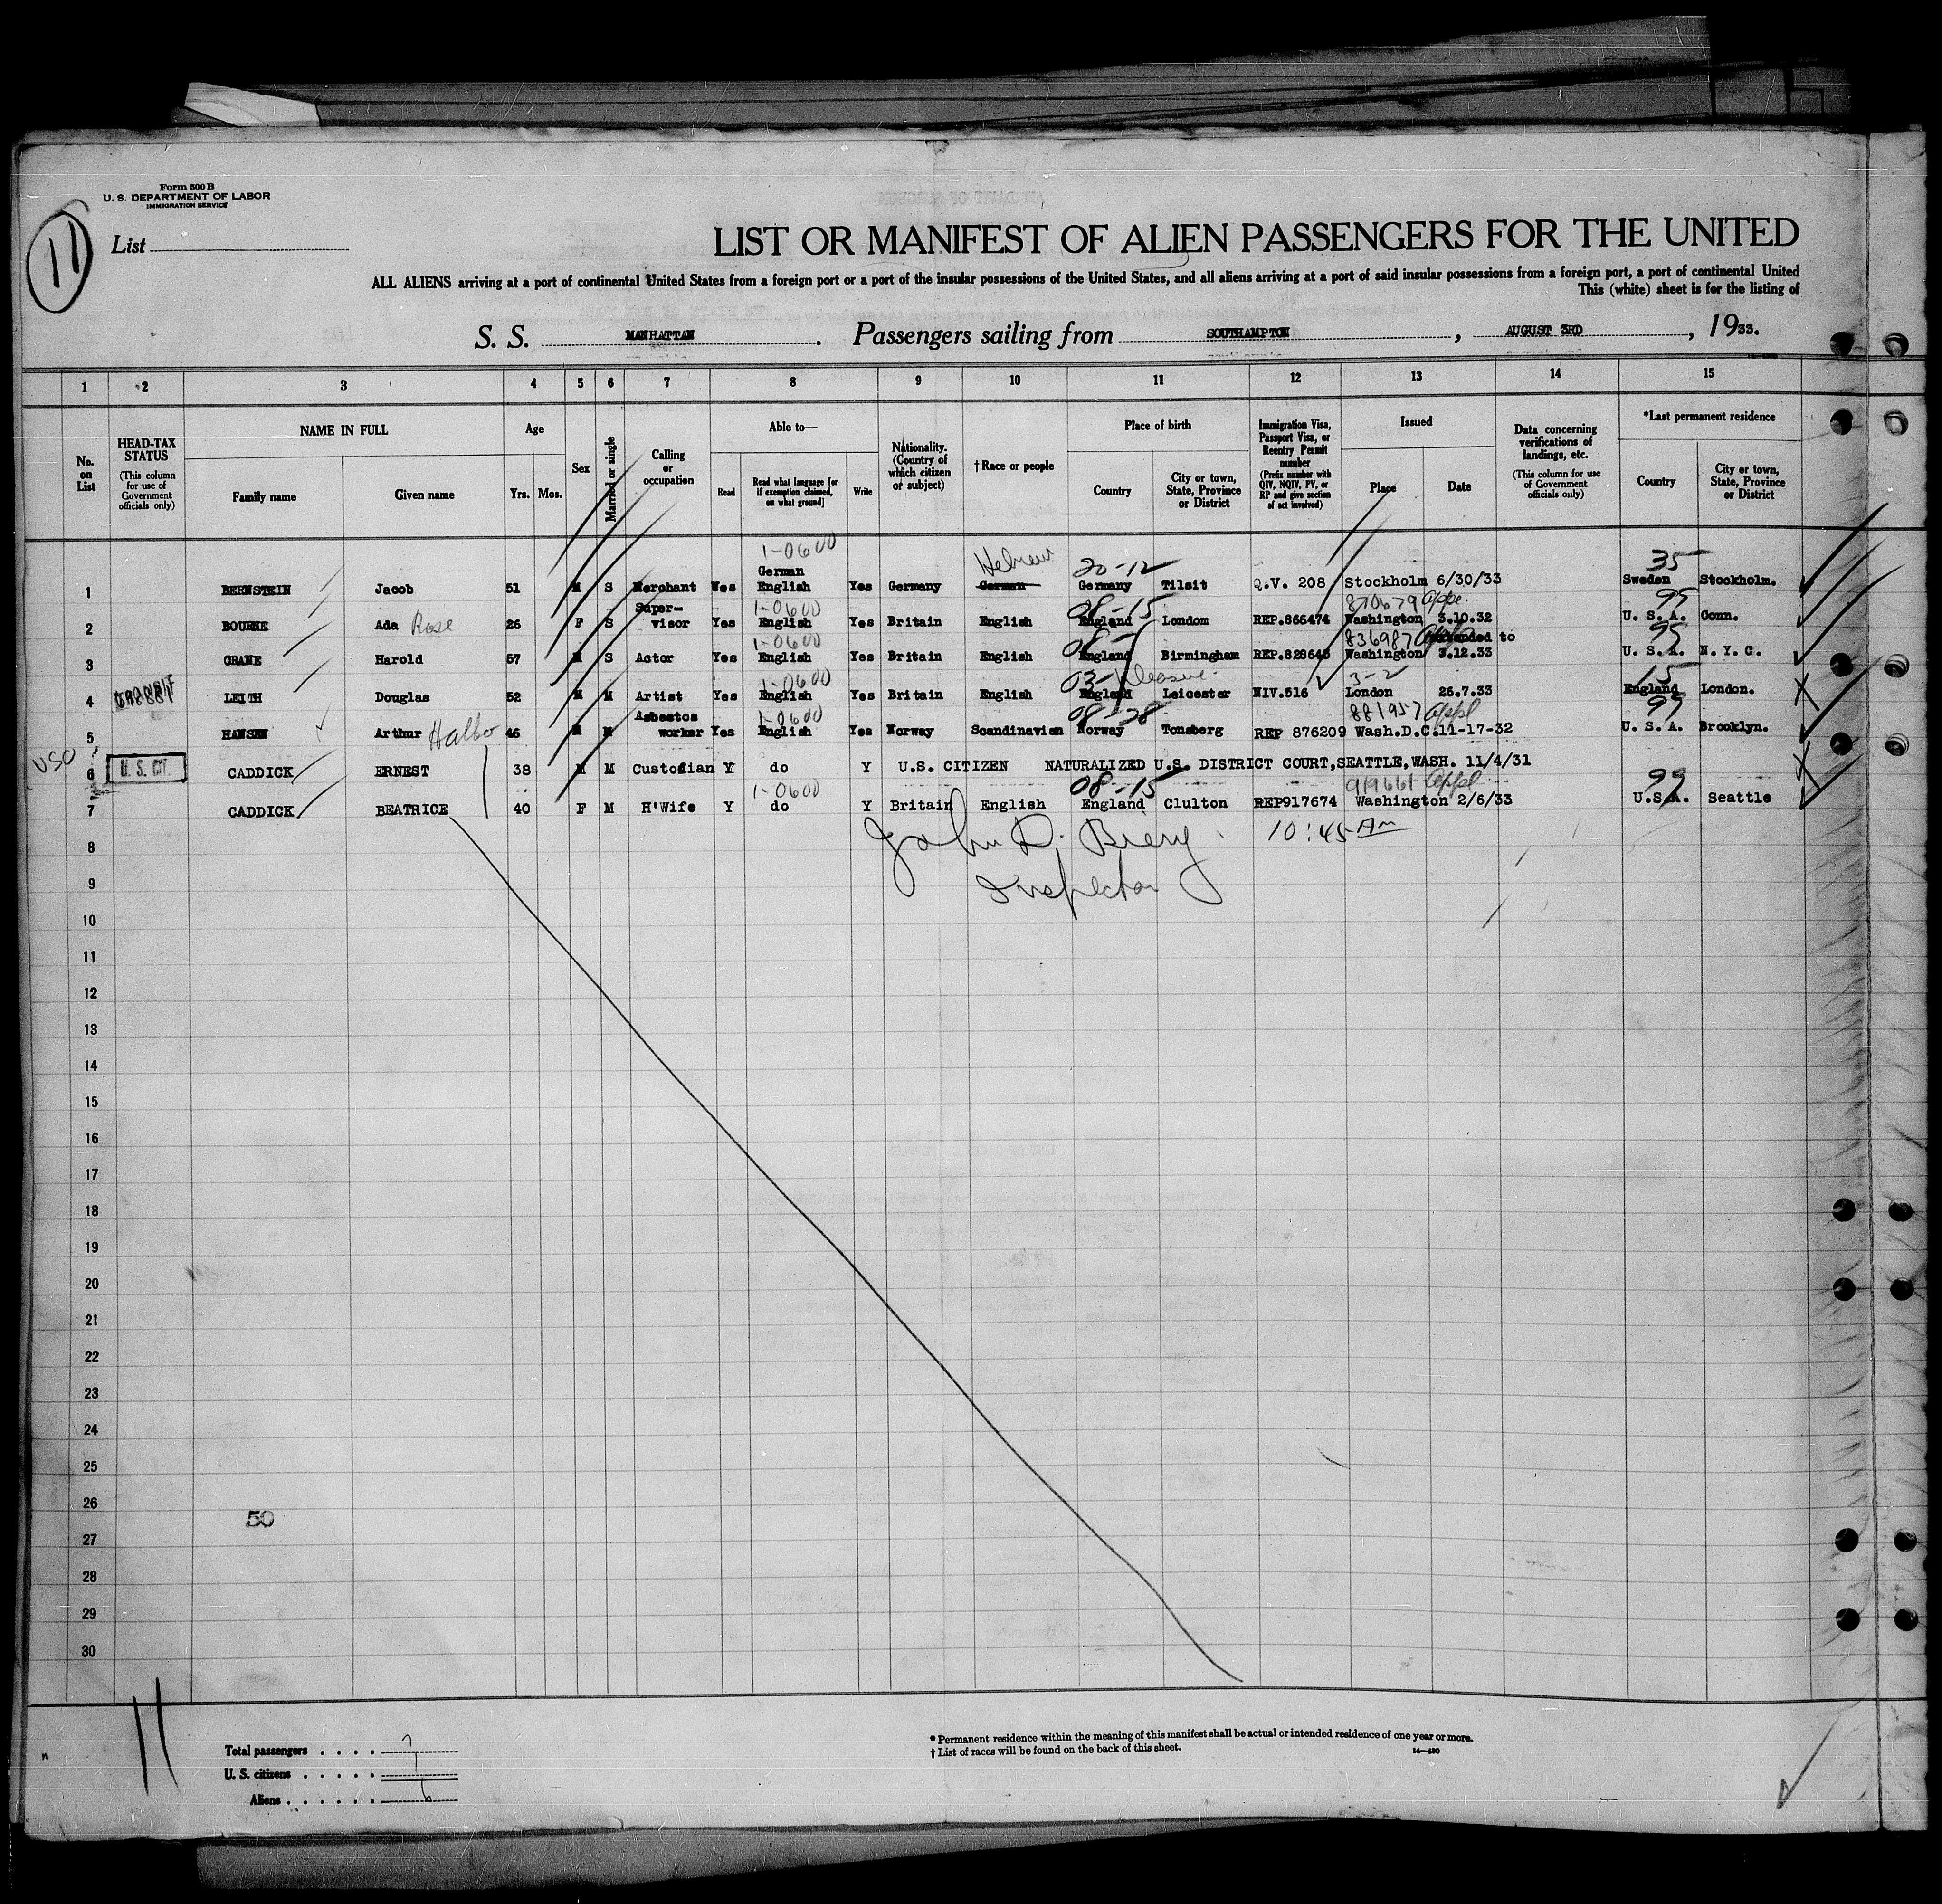 Form 500 B
U. S. DEPARTMENT OF LABOR
IMMIGRATION SERVICE
11
List
LIST OR MANIFEST OF ALIEN PASSENGERS FOR THE UNITED
ALL ALIENS arriving at a port of continental United States from a foreign port or a port of the insular possessions of the United States, and all aliens arriving at a port of said insular possessions from a foreign port, a port of continental United
This (white) sheet is for the listing of
S. S. MANHATTAN. Passengers sailing from SOUTHAMPTON, AUGUST 3RD, 1933.
1 2 3 4 5 6 7 8 9 10 11 12 13 14 15
No. on List
HEAD-TAX STATUS (This column for use of Government officials only)
NAME IN FULL
Family name Given name
Age
Yrs. Mos.
Sex
Married or single
Calling or occupation
Able to—
Read Read what language [or if exemption claimed, on what ground] Write
Nationality. (Country of which citizen or subject)
†Race or people
Place of birth
Country City or town, State, Province or District
Immigration Visa, Passport Visa, or Reentry Permit number (Prefix number with QIV, NQIV, PV, or RP and give section of act involved)
Issued
Place Date
Data concerning verifications of landings, etc. (This column for use of Government officials only)
*Last permanent residence
Country City or town, State, Province or District
1-0600 Hebrew 20-12 35
1 BERNSTEIN Jacob 51 M S Merchant Yes German English Yes Germany German Germany Tilsit Q.V. 208 Stockholm 6/30/33 Sweden Stockholm.
1-0600 08-15 870679 99
2 BOURNE Ada Rose 26 F S Super-visor Yes English Yes Britain English England London REP.866474 Washington 3.10.32 U. S. A. Conn.
1-0600 836987 to 95
3 CRANE Harold 57 M S Actor Yes English Yes Britain English England Birmingham REP.828645 Washington 3.12.33 U. S. A. N. Y. C.
1-0600 03- 3-2 15
4 TRANSIT LEITH Douglas 52 M M Artist Yes English Yes Britain English England Leicester NIV.516 London 26.7.33 England London.
1-0600 08-28 881957 Appl 99
5 HANSEN Arthur Halbo 46 M M Asbestos worker Yes English Yes Norway Scandinavian Norway Tonsberg REP 876209 Wash.D.C.11-17-32 U. S. A. Brooklyn.
USC 6 U. S. CIT. CADDICK ERNEST 38 M M Custodian Y do Y U.S. CITIZEN NATURALIZED U.S. DISTRICT COURT,SEATTLE,WASH. 11/4/31
1-0600 08-15 919661 Appl 99
7 CADDICK BEATRICE 40 F M H'Wife Y do Y Britain English England Clulton REP917674 Washington 2/6/33 U.S.A. Seattle
8 John D. Biery 10:45 Am
9 Inspector
10
11
12
13
14
15
16
17
18
19
20
21
22
23
24
25
26
50
27
28
29
30
11
Total passengers . . . . 7
U. S. citizens . . . . . 1
Aliens . . . . . . 6
* Permanent residence within the meaning of this manifest shall be actual or intended residence of one year or more.
† List of races will be found on the back of this sheet.
14—480